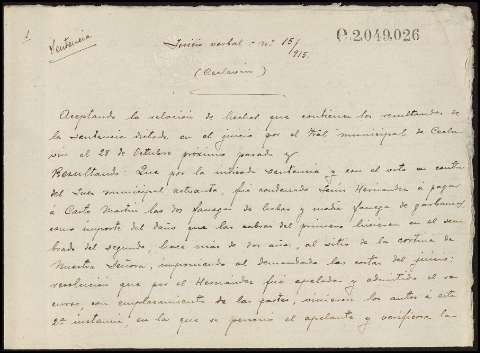 1
Sentencia
Juicio verbal - nº 157
/915.
C.2.049.026
(Ceclavín)
Aceptando la relación de hechos que contienen los resultandos de
la sentencia dictada en el juicio por el Tbal municipal de Cecla-
vín el 28 de Octubre próximo pasado y
Resultando: Que por la indicada sentencia y con el voto en contra
del Juez municipal actuante, fué condenado Hernández á pagar
á Martín las dos fanegas de y media fanega de garbanzos
como importe del daño que las cabras del primero hicieron en el sem-
brado del segundo, hace más de dos años, al sitio de la cortina de
Nuestra Señora, imponiendo al demandado las costas del juicio;
resolución que por el Hernández fué apelada y admitido el re-
curso, con emplazamiento de las partes, vinieron los autos á esta
2ª instancia, en la que se personó el apelante y verificose la